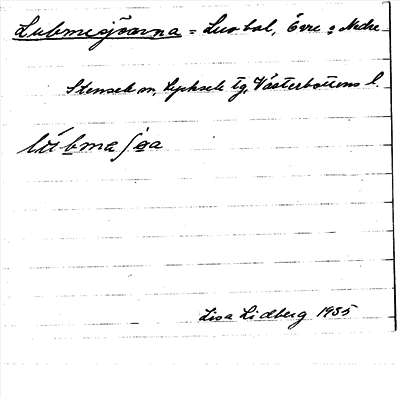 Lubmesjöarna = Luobal, Övre o Nedre
Stensele sn, Lycksele tg, Västerbottens l.
Lisa Lidberg 1935